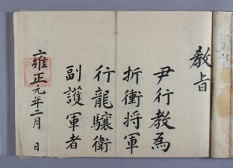 教旨
尹行教為
折衝將軍
行龍驤衛
副護軍者
雍正元年二月 日